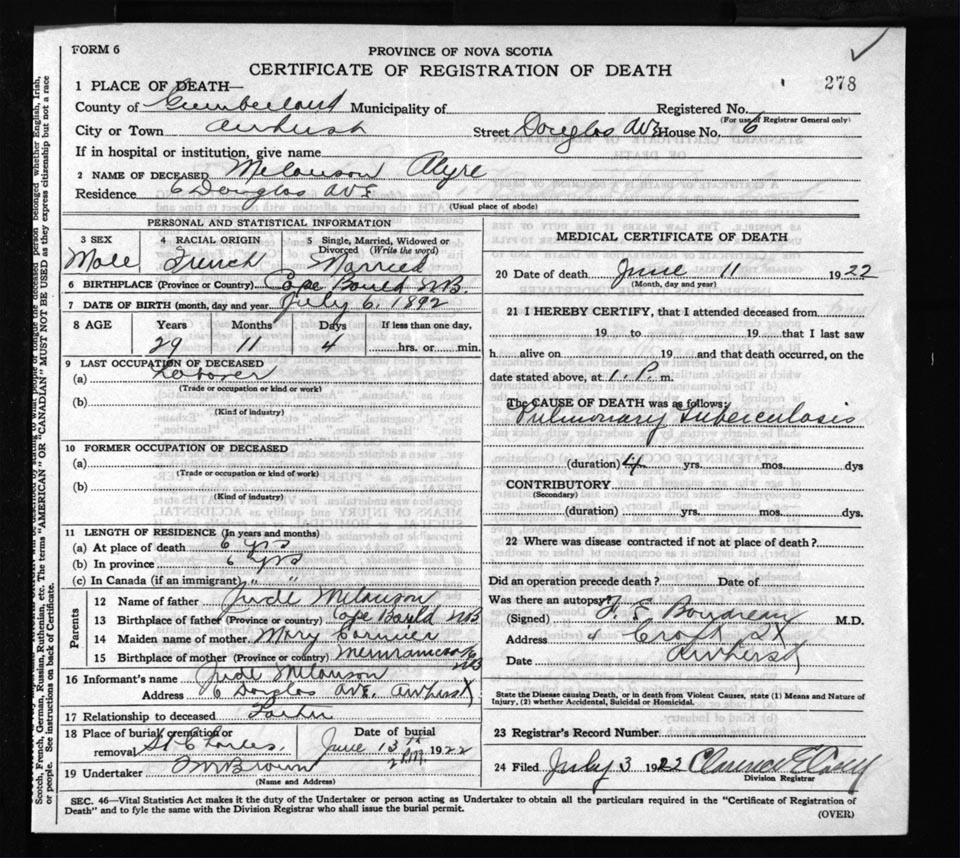 FORM 6
PROVINCE OF NOVA SCOTIA
CERTIFICATE OF REGISTRATION OF DEATH
278
1 PLACE OF DEATH—
County of Cumberland Municipality of Registered No.
(For use of Registrar General only)
City or Town Amherst Street Douglas AVE House No. 6
If in hospital or institution, give name
2 NAME OF DECEASED Melanson Alyre
Residence 6 Douglas AVE
(Usual place of abode)
PERSONAL AND STATISTICAL INFORMATION
3 SEX 4 RACIAL ORIGIN 5 Single, Married, Widowed or
Divorced (Write the word)
Male French Married
6 BIRTHPLACE (Province or Country) Cape Bauld N.B.
7 DATE OF BIRTH (month, day and year) July 6, 1892
8 AGE Years Months Days If less than one day,
29 11 4 hrs. or min.
9 LAST OCCUPATION OF DECEASED
(a) Laborer
(Trade or occupation or kind or work)
(b)
(Kind of industry)
10 FORMER OCCUPATION OF DECEASED
(a)
(Trade or occupation or kind of work)
(b)
(Kind of industry)
11 LENGTH OF RESIDENCE (In years and months)
(a) At place of death 6 yrs
(b) In province 6 yrs
(c) In Canada (if an immigrant) " "
Parents
12 Name of father Jude Melanson
13 Birthplace of father (Province or country) Cape Bauld NB
14 Maiden name of mother Mary Cormier
15 Birthplace of mother (Province or country) Memramcook NB
16 Informant's name Jude Melanson
Address 6 Douglas AVE. Amherst
17 Relationship to deceased Father
18 Place of burial, cremation or Date of burial
removal St Charles, June 13th 1922
2 P.M.
19 Undertaker Brown
(Name and Address)
MEDICAL CERTIFICATE OF DEATH
20 Date of death June 11 1922
(Month, day and year)
21 I HEREBY CERTIFY, that I attended deceased from
19 to 19 that I last saw
h alive on 19 and that death occurred, on the
date stated above, at 1. P. m.
The CAUSE OF DEATH was as follows:
Pulmonary Tuberculosis
(duration) yrs. mos. dys
CONTRIBUTORY
(Secondary)
(duration) yrs. mos. dys.
22 Where was disease contracted if not at place of death?
Did an operation precede death? Date of
Was there an autopsy?
(Signed) E Boudreau M.D.
Address Croft St
Amherst
Date
State the Disease causing Death, or in death from Violent Causes, state (1) Means and Nature of
Injury, (2) whether Accidental, Suicidal or Homicidal.
23 Registrar's Record Number
24 Filed July 3 1922 Clarence
Division Registrar
SEC. 46—Vital Statistics Act makes it the duty of the Undertaker or person acting as Undertaker to obtain all the particulars required in the "Certificate of Registration of
Death" and to fyle the same with the Division Registrar who shall issue the burial permit.
(OVER)
Scotch, French, German, Russian, Ruthenian, etc. The terms "AMERICAN" OR "CANADIAN" MUST NOT BE USED as they express citizenship but not a race
or people. See instructions on back of Certificate.